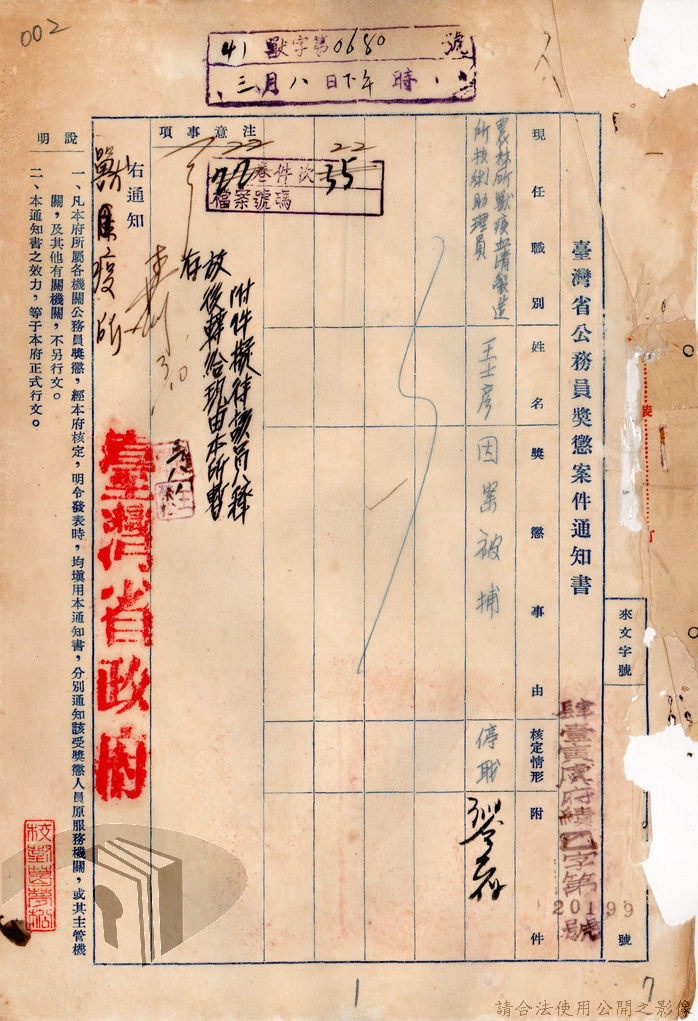 002
41 獸字第0680號
三月八日下午 時
臺灣省公務員獎懲案件通知書
來文字號
肆壹寅虞府績乙字第
20199號
號
裝
訂
現任職別
姓名
獎懲事由
核定情形
附件
農林所獸疫血清製造
所技術助理員
王士彥
因案被捕
停職
注意事項
22
22
22 卷件次 35
檔案號碼
附件擬待該員釋
放後轉給現由本所暫
存
右通知
獸疫所
臺灣省政府
說明
一、凡本府所屬各機關公務員獎懲，經本府核定，明令發表時，均塡用本通知書，分別通知該受獎懲人員原服務機關，或其主管機
關，及其他有關機關，不另行文。
二、本通知書之效力，等于本府正式行文。
1
7
請合法使用公開之影像